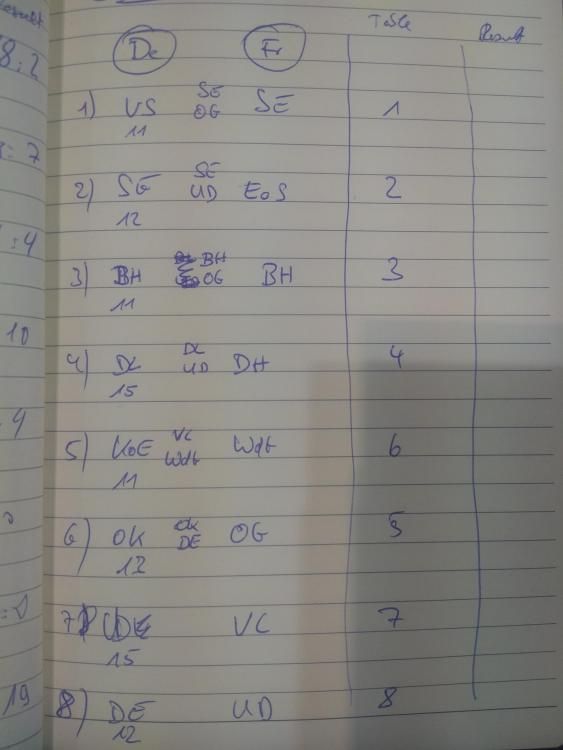 Result
Table Result
De Fr
8:2
SE
1) VS OG SE 1
11
: 7
SE
2) SG UD EoS 2
12
:4
BH
3) BH OG BH 3
11
10
DL
4) DL UD DH 4
15
4
VC
5) KoE WdG WdG 6
11
OK
6) OK DE OG 5
12
7) VC 7
15
19
8) DE UD 8
12